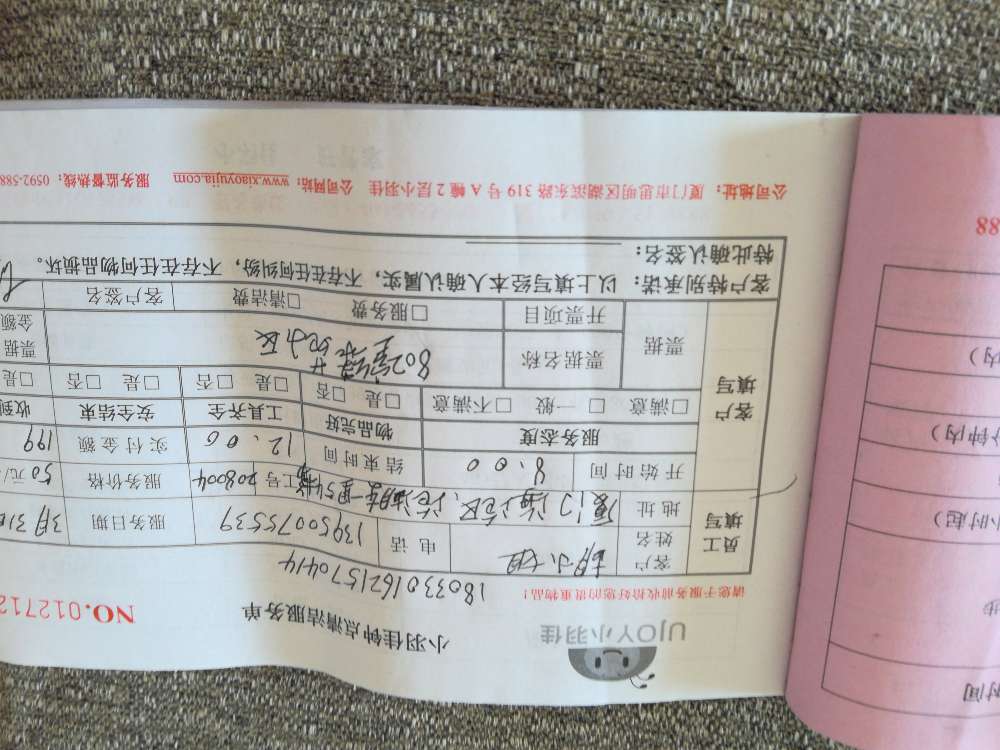 UJOY小羽佳
小羽佳钟点清洁服务单 NO.012712
请您于服务前收拾好您的贵重物品！ 180330161621570414
员工填写 客户姓名 胡小姐 电话 13950075539 服务日期 3月31日
地址 工号 208004 服务价格 50元/
开始时间 8.00 结束时间 12.00 实付金额 199
客户填写 服务态度 物品完好 工具齐全 安全结束 收到
□满意 □一般 □不满意 □是 □否 □是 □否 □是 □否 □是
票据 票据名称 票据金额
开票项目 □服务费 □清洁费 客户签名
客户特别承诺：以上填写经本人确认属实，不存在任何纠纷，不存在任何物品损坏。
特此确认签名：
公司地址：厦门市思明区湖滨东路319号A幢2层小羽佳 公司网站：www.xiaoyujia.com 服务监督热线：0592-588
时间
步
小时起）
钟内）
内）
88